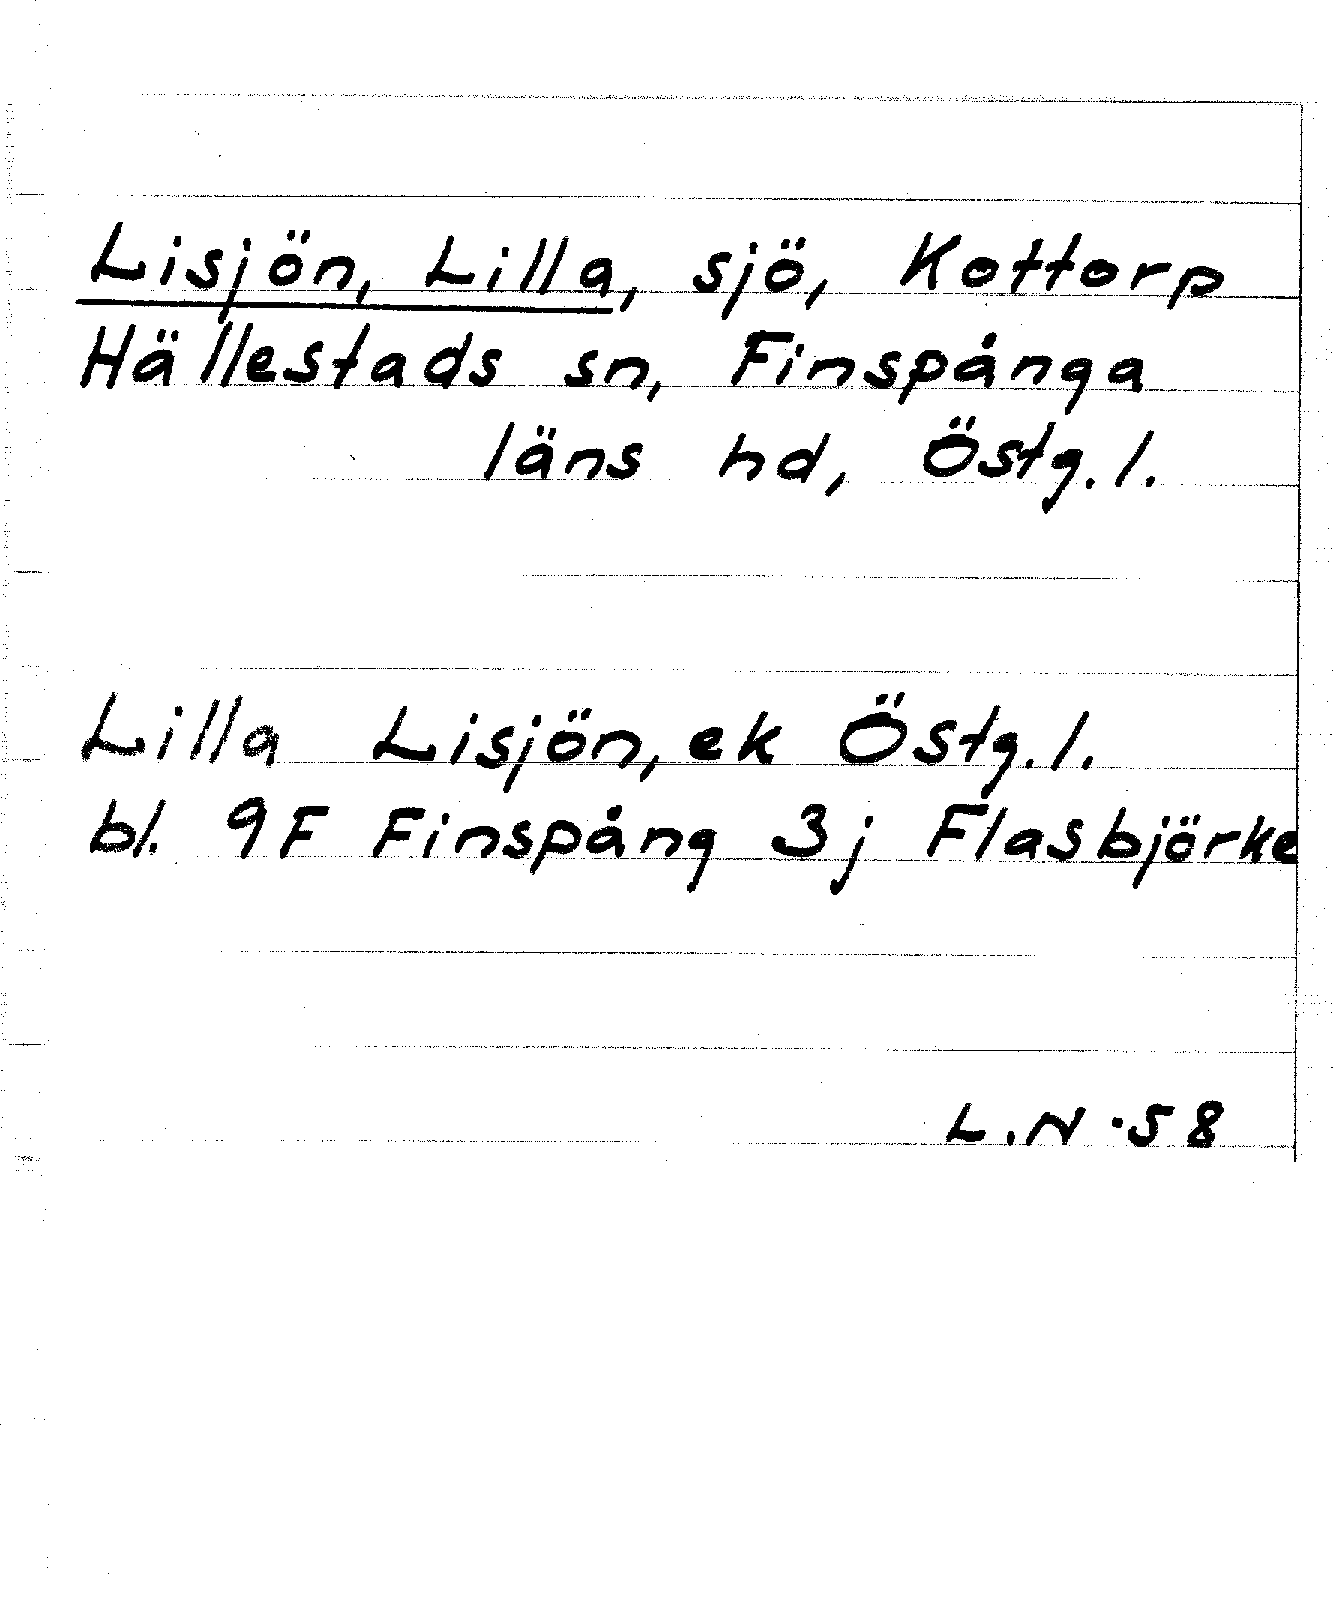 Lisjön, Lilla, sjö, Kottorp
Hällestads sn, Finspånga
läns hd, Östg.l.
Lilla Lisjön, ek Östg.l.
bl. 9F Finspång 3j Flasbjörke
L.N.58